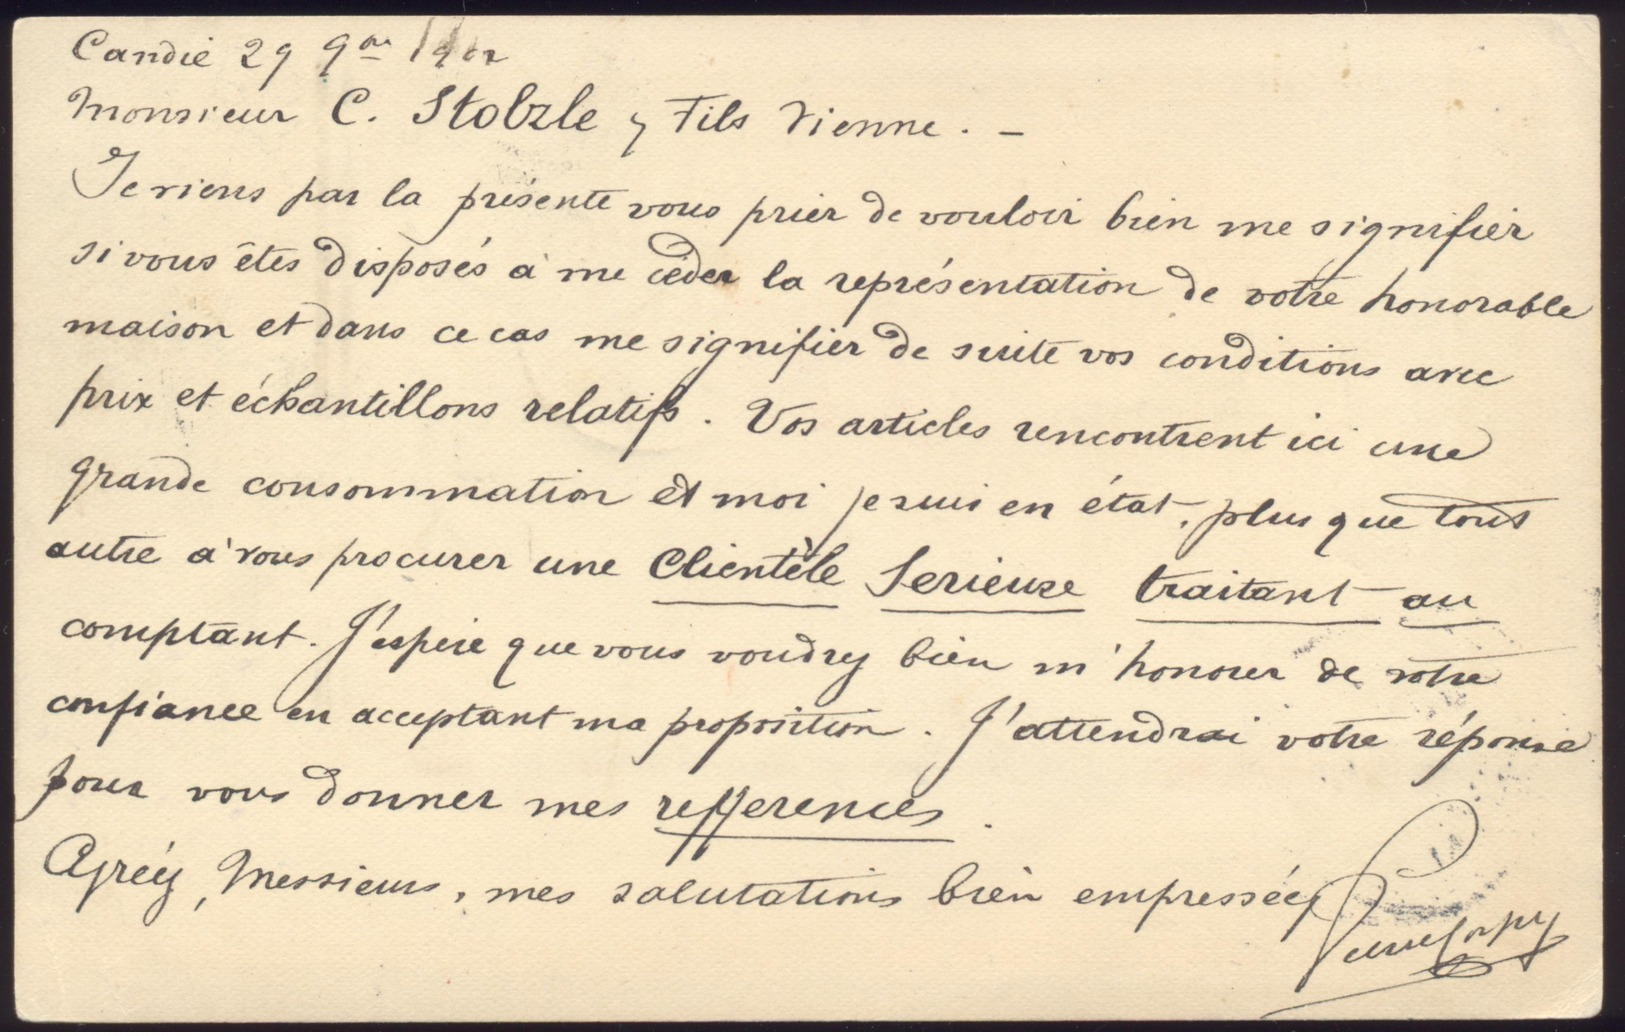 Candie 29 9bre 1902
Monsieur C. Stolzle y Fils Vienne. –
Je viens par la présente vous prier de vouloir bien me signifier
si vous êtes disposés à me céder la représentation de votre honorable
maison et dans ce cas me signifier de suite vos conditions avec
prix et échantillons relatifs. Vos articles rencontrent ici une
grande consommation et moi je suis en état, plus que tout
autre à vous procurer une Clientèle Serieuse traitant au
comptant. J'espère que vous voudrez bien m'honorer de votre
confiance en acceptant ma proposition. J'attendrai votre réponse
pour vous donner mes refferences.
Agréez, Messieurs, mes salutations bien empressées